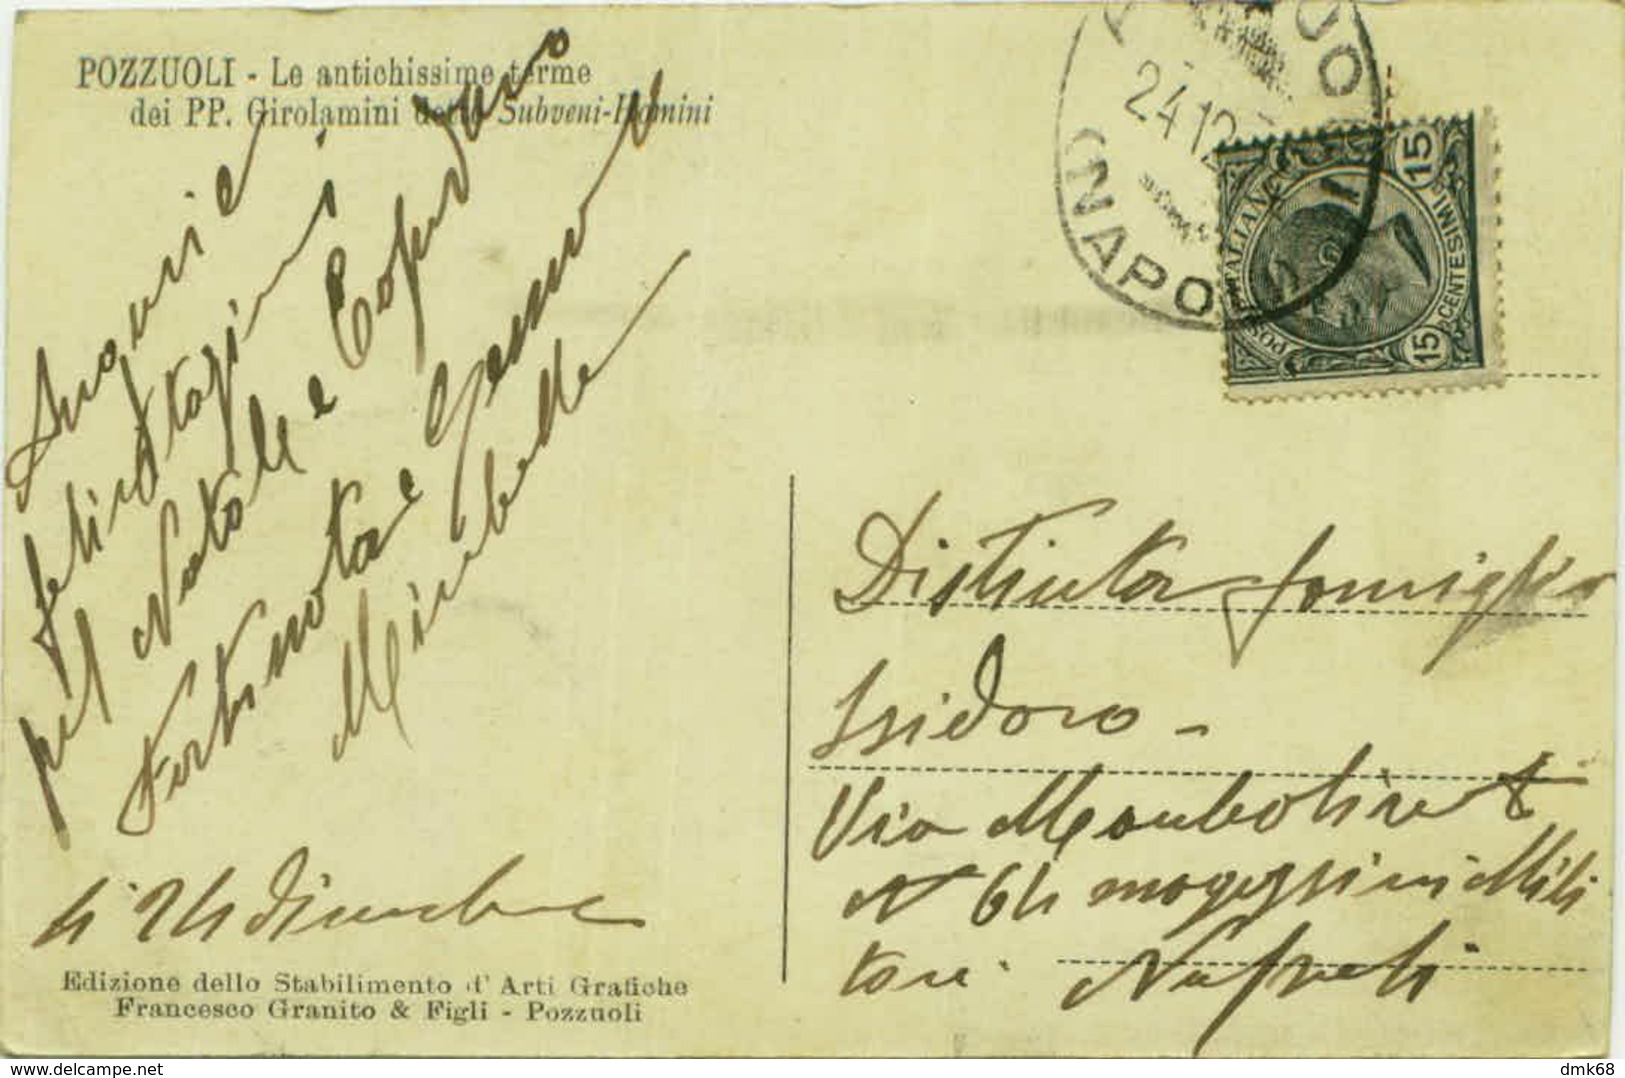 POZZUOLI - Le antichissime terme
dei PP. Girolamini dette Subveni-Homini
Auguri e
felicitazioni
pel Natale e Capodanno
Fortunata e Gennaro
Mirabella
li 24 dicembre
Edizione dello Stabilimento d'Arti Grafiche
Francesco Granito & Figli - Pozzuoli
24.12
(NAPOLI)
POSTE ITALIANE
15 CENTESIMI 15
Distinta famiglia
Isidoro -
Via
N 64 magazzini Mili
tari Napoli
delcampe.net
dmk68